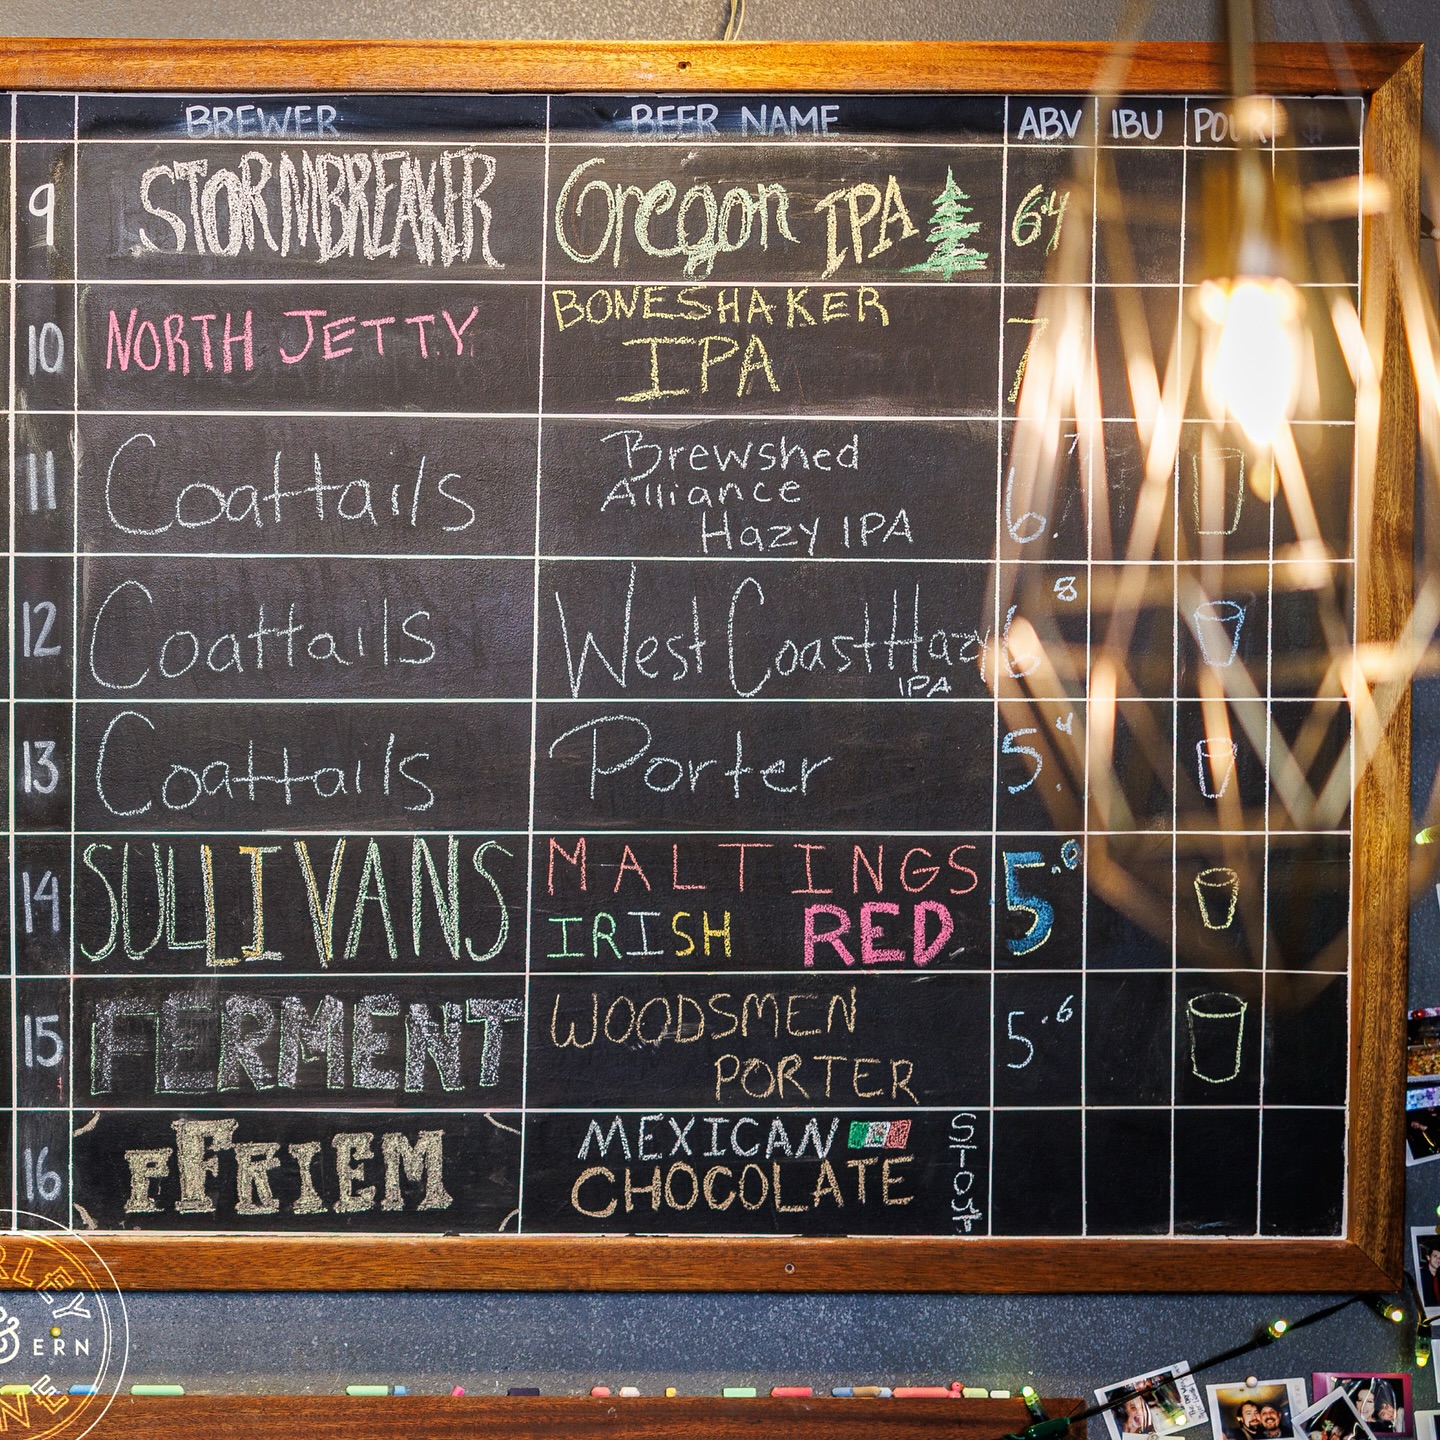 BREWER BEER NAME ABV IBU POUR
9 STORMBREAKER Oregon IPA 6.4
10 NORTH JETTY BONESHAKER
IPA 7
11 Coattails Brewshed
Alliance
Hazy IPA 6.7
12 Coattails West Coast Hazy 6.8
IPA
13 Coattails Porter 5.4
14 SULLIVANS MALTINGS 5.0
IRISH RED
15 FERMENT WOODSMEN 5.6
PORTER
16 PFRIEM MEXICAN
CHOCOLATE STOUT
RLEY
& ERN
NE